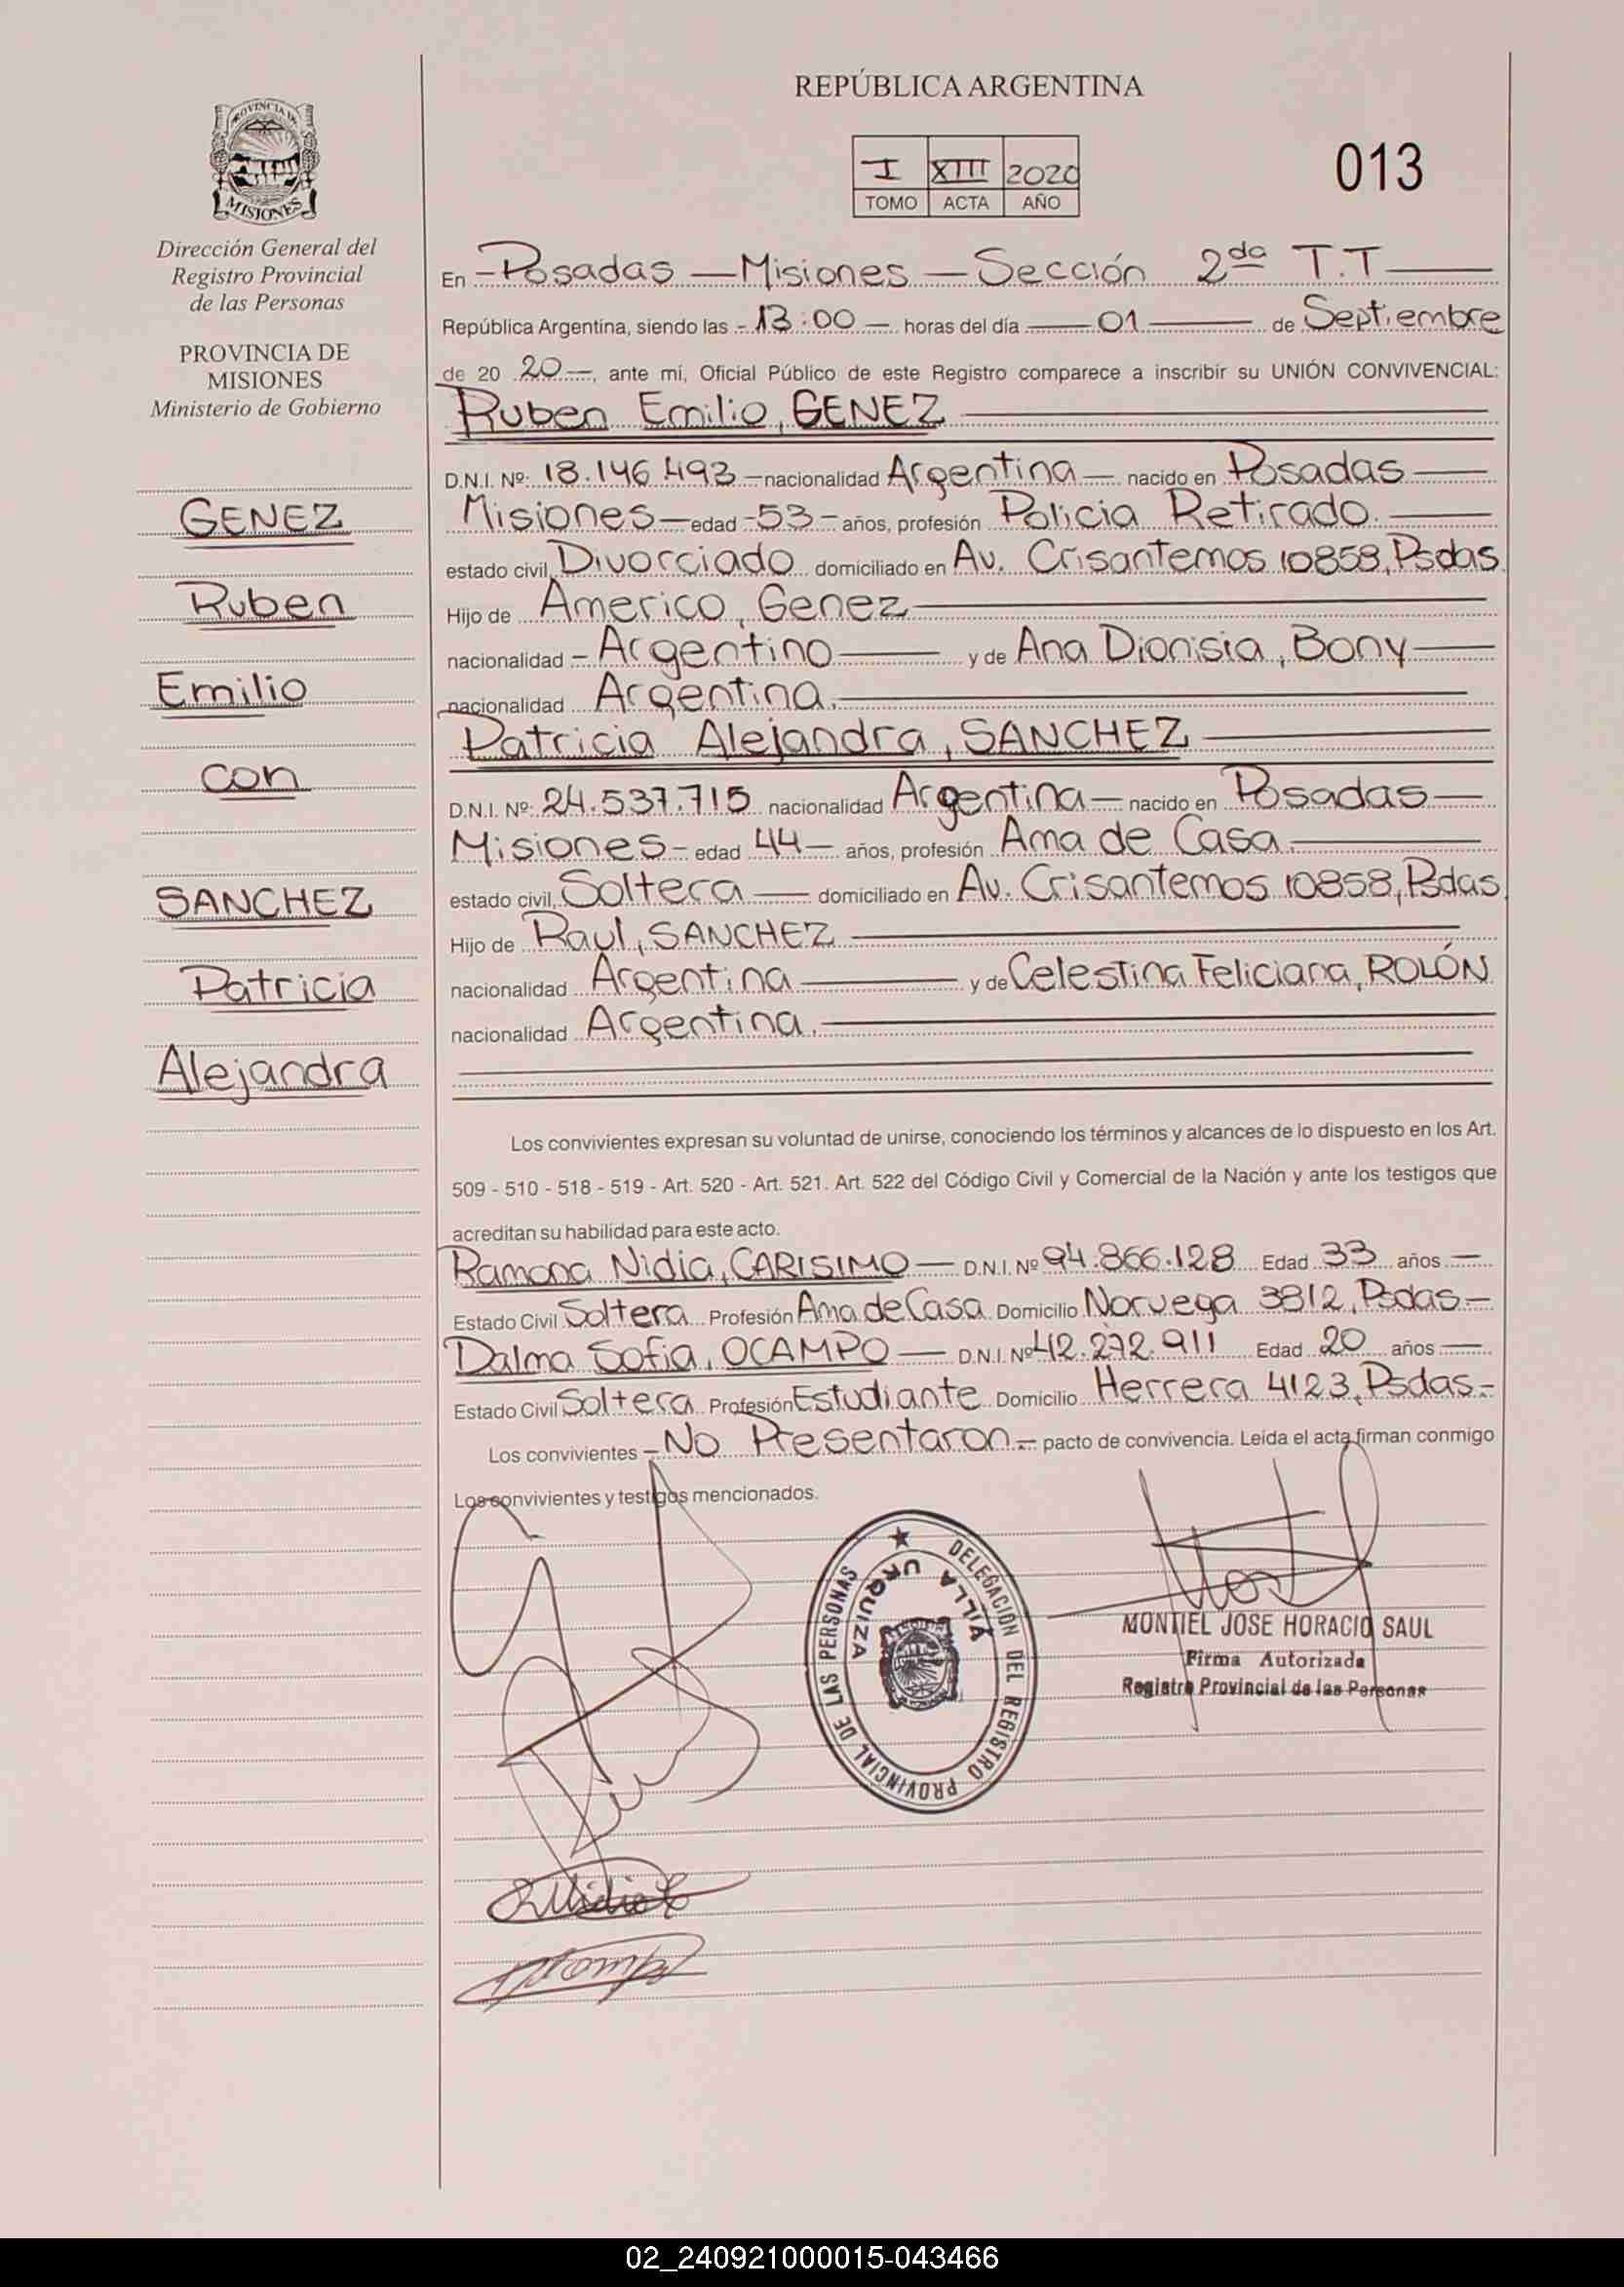 PROVINCIA DE
MISIONES
Dirección General del
Registro Provincial
de las Personas
PROVINCIA DE
MISIONES
Ministerio de Gobierno
GENEZ
Ruben
Emilio
con
SANCHEZ
Patricia
Alejandra
REPÚBLICA ARGENTINA
I XIII 2020
TOMO ACTA AÑO
013
En - Posadas - Misiones - Sección 2da T.T
República Argentina, siendo las - 13:00 - horas del día - 01 - de Septiembre
de 20 20 -, ante mí, Oficial Público de este Registro comparece a inscribir su UNIÓN CONVIVENCIAL:
Ruben Emilio, GENEZ
D.N.I. Nº: 18.146.493 - nacionalidad Argentina - nacido en Posadas
Misiones - edad - 53 - años, profesión Policia Retirado.
estado civil, Divorciado domiciliado en Av. Crisantemos 10858, Psdas
Hijo de Americo, Genez
nacionalidad - Argentino y de Ana Dionisia, Bony
nacionalidad Argentina.
Patricia Alejandra, SANCHEZ
D.N.I. Nº: 24.537.715 nacionalidad Argentina - nacido en Posadas
Misiones - edad 44 - años, profesión Ama de Casa.
estado civil, Soltera - domiciliado en Av. Crisantemos 10858, Psdas
Hijo de Raul, SANCHEZ
nacionalidad Argentina y de Celestina Feliciana, ROLÓN
nacionalidad Argentina.
Los convivientes expresan su voluntad de unirse, conociendo los términos y alcances de lo dispuesto en los Art.
509 - 510 - 518 - 519 - Art. 520 - Art. 521. Art. 522 del Código Civil y Comercial de la Nación y ante los testigos que
acreditan su habilidad para este acto.
Ramona Nidia, CARISIMO - D.N.I. Nº 94.866.128 Edad 33 años -
Estado Civil Soltera Profesión Ama de Casa Domicilio Noruega 3812, Psdas -
Dalma Sofia, OCAMPO - D.N.I. Nº 42.272.911 Edad 20 años -
Estado Civil Soltera Profesión Estudiante Domicilio Herrera 4123, Psdas -
Los convivientes - No Presentaron - pacto de convivencia. Leída el acta firman conmigo
Los convivientes y testigos mencionados.
DELEGACION DEL REGISTRO PROVINCIAL DE LAS PERSONAS
VILLA URQUIZA
MONTIEL JOSE HORACIO SAUL
Firma Autorizada
Registro Provincial de las Personas
02_240921000015-043466